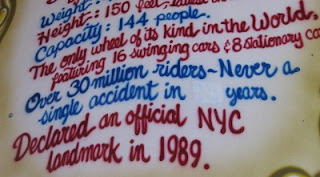 Weight:
Height: 150 feet,
Capacity: 144 people.
The only wheel of its kind in the World,
featuring 16 swinging cars & 8 stationary
Over 30 million riders- Never a
single accident in years.
Declared an official NYC
landmark in 1989.